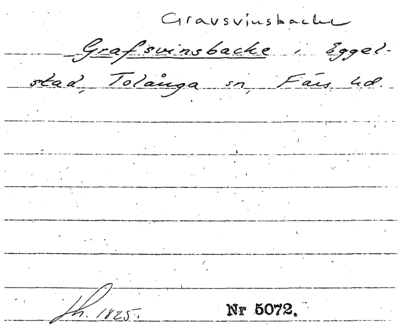 Gravsvinsbacke
Grafsvinsbacke i Eggel-
stad, Tolånga sn, Färs hd.
Lh. 1825.
Nr 5072.